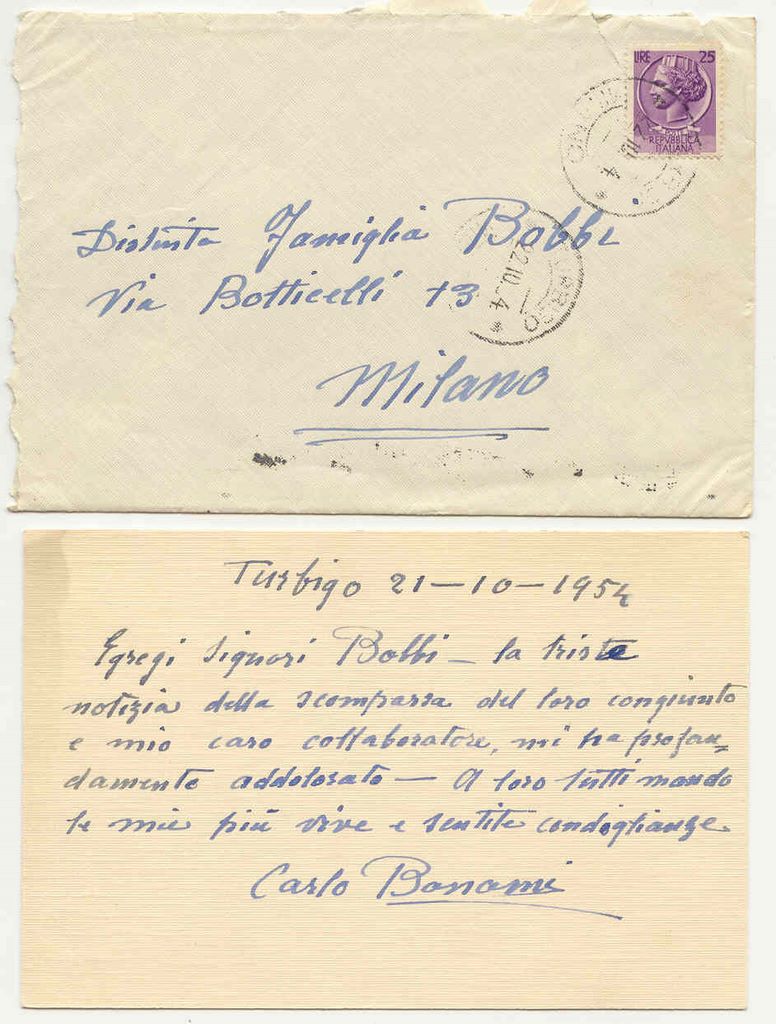 LIRE 25
REPVBBLICA
ITALIANA
Distinta Famiglia Bobbi
Via Botticelli 13
Milano
Turbigo 21-10-1954
Egregi Signori Bobbi - la triste
notizia della scomparsa del loro congiunto
e mio caro collaboratore, mi ha profon=
damente addolorato - A loro tutti mando
le mie più vive e sentite condoglianze
Carlo Bonomi